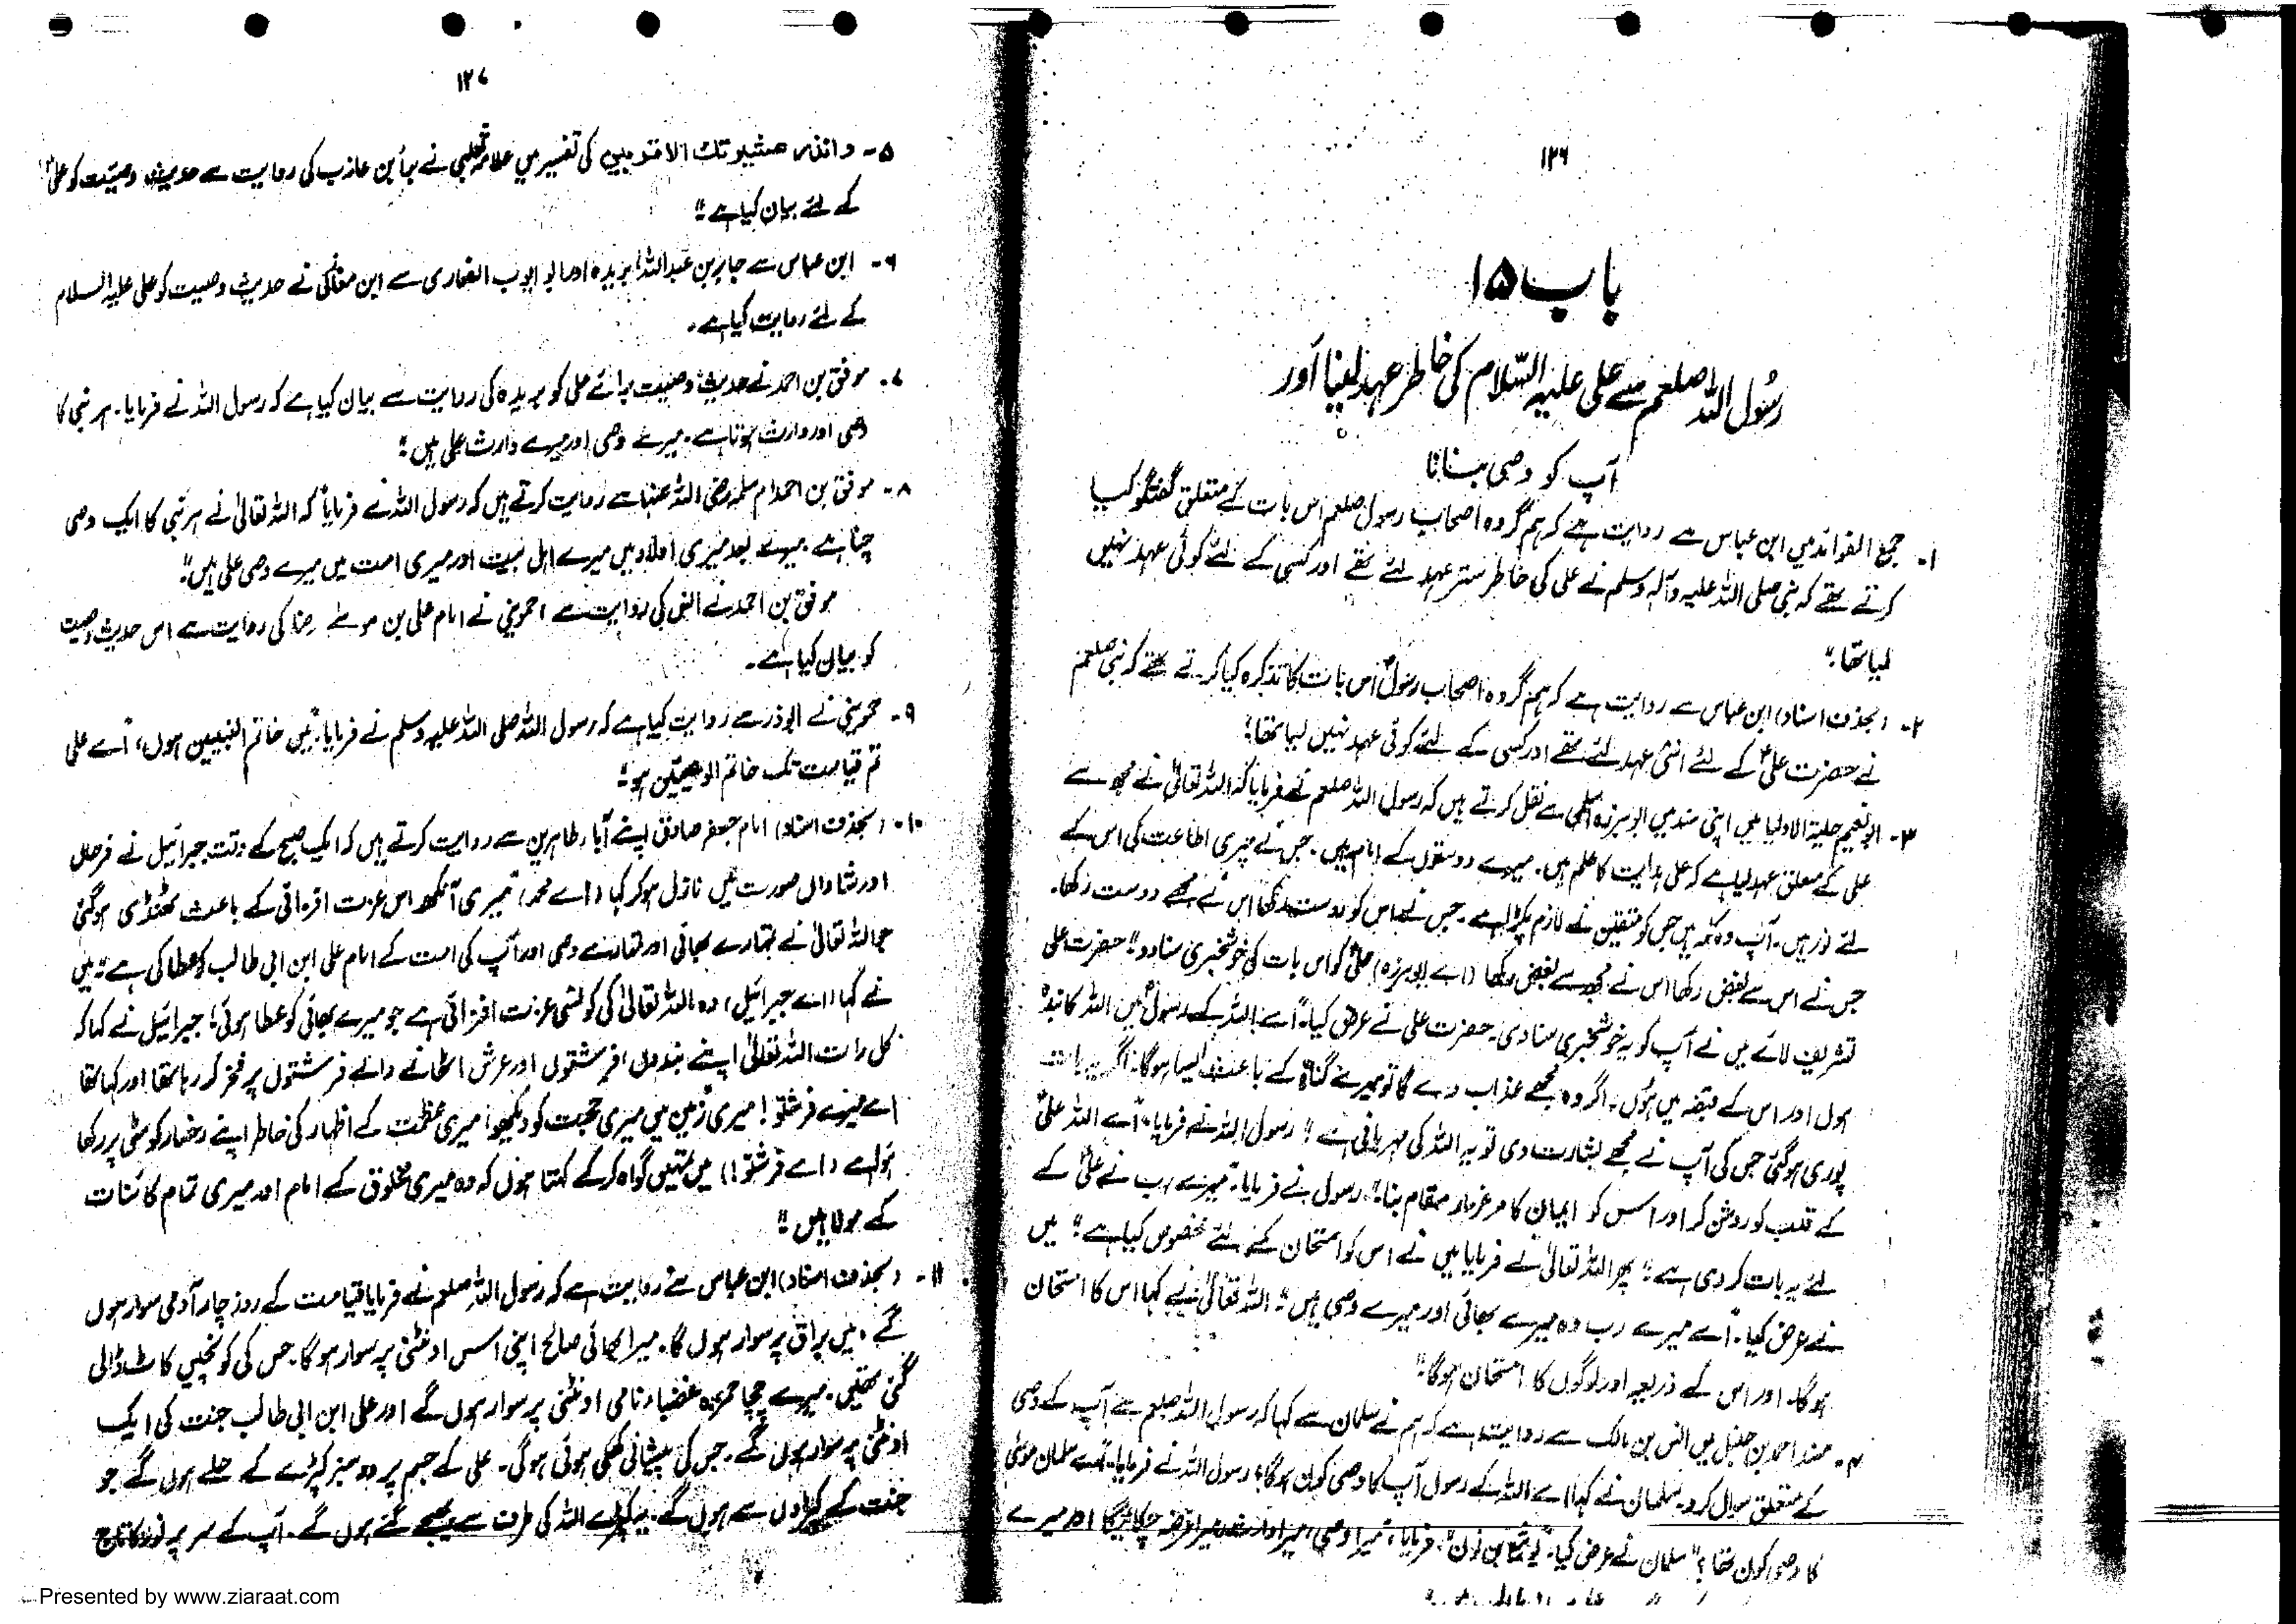 ۱۲۶
باب ۱۵
رسُول اللہ صلعم سے علی علیہ السّلام کی خاطر عہد لینا اَور
آپ کو وصی بنانا
۱- جمع الفوائد میں ابن عباس سے روایت ہے کہ ہم گروہ اصحاب رسول صلعم اس بات کے متعلق گفتگو کیا
کرتے تھے کہ نبی صلی اللہ علیہ وآلہ وسلم نے علی کی خاطر ستر عہد لئے تھے اور کسی کے لئے کوئی عہد نہیں
لیا تھا۔"
۲- (بحذف اسناد) ابن عباس سے روایت ہے کہ ہم گروہ اصحاب رسول اس بات کا تذکرہ کیا کرتے تھے کہ نبی صلعم
نے حضرت علی کے لئے اسّی عہد لئے تھے اور کسی کے لئے کوئی عہد نہیں لیا تھا۔"
۳- ابو نعیم حلیۃ الاولیا میں اپنی سند میں ابو برزہ اسلمی سے نقل کرتے ہیں کہ رسول اللہ صلعم نے فرمایا کہ اللہ تعالیٰ نے مجھ سے
علی کے متعلق عہد لیا ہے کہ علی ہدایت کا علم ہیں۔ میرے دوستوں کے امام ہیں۔ جس نے میری اطاعت کی اس کے
لئے نور ہیں۔ آپ وہ کلمہ ہیں جس کو متقین نے لازم پکڑا ہے۔ جس نے اس کو دوست رکھا اس نے مجھے دوست رکھا۔
جس نے اس سے بغض رکھا اس نے مجھ سے بغض رکھا (اے ابو برزہ) علی کو اس بات کی خوشخبری سنا دو" حضرت علی
تشریف لائے میں نے آپ کو یہ خوشخبری سنا دی۔ حضرت علی نے عرض کیا۔ اے اللہ کے رسول میں اللہ کا بندہ
ہوں اور اس کے قبضہ میں ہوں۔ اگر وہ مجھے عذاب دے گا تو میرے گناہ کے باعث ایسا ہوگا۔ اگر یہ بات
پوری ہوگئی جس کی آپ نے مجھے بشارت دی تو یہ اللہ کی مہربانی ہے" رسول اللہ نے فرمایا۔ "اے اللہ علی
کے قلب کو روشن کر اور اس کو ایمان کا مرغزار مقام بنا"۔ رسول نے فرمایا۔ "میرے رب نے علی کے
لئے یہ بات کر دی ہے" پھر اللہ تعالیٰ نے فرمایا میں نے اس کو امتحان کے لئے مخصوص کیا ہے" میں
نے عرض کیا۔ "اے میرے رب وہ میرے بھائی اور میرے وصی ہیں" اللہ تعالیٰ نے کہا اس کا امتحان
ہوگا۔ اور اس کے ذریعہ اور لوگوں کا امتحان ہوگا۔"
۴- مسند احمد بن حنبل میں انس بن مالک سے روایت ہے کہ ہم نے سلمان سے کہا کہ رسول اللہ صلعم سے آپ کے وصی
کے متعلق سوال کرو۔ سلمان نے کہا اے اللہ کے رسول آپ کا وصی کون ہوگا؟ رسول اللہ نے فرمایا۔ اے سلمان موسیٰ
کا وصی کون تھا؟" سلمان نے عرض کیا۔ "یوشع بن نون"۔ فرمایا، "میرا وصی، میرا وارث میرا قرضہ چکائیگا اور میرے
۱۲۷
۵- وانذر عشیرتک الاقربین کی تفسیر میں علامہ ثعلبی نے برأ بن عازب کی روایت سے حدیث وصیّت کو علی
کے لئے بیان کیا ہے"
۶- ابن عباس سے جابر بن عبداللہ، بریدہ اور ابو ایوب انصاری سے ابن مغازلی نے حدیث وصیت کو علی علیہ السلام
کے لئے روایت کیا ہے۔
۷- موفق بن احمد نے حدیث وصیت برائے علی کو بریدہ کی روایت سے بیان کیا ہے کہ رسول اللہ نے فرمایا۔ ہر نبی کا
وصی اور وارث ہوتا ہے۔ میرے وصی اور میرے وارث علی ہیں"
۸- موفق بن احمد ام سلمہ رضی اللہ عنہا سے روایت کرتے ہیں کہ رسول اللہ نے فرمایا کہ اللہ تعالیٰ نے ہر نبی کا ایک وصی
چنا ہے۔ میرے بعد میری اولاد میں میرے اہل بیت اور میری امت میں میرے وصی علی ہیں"۔
موفق بن احمد نے انس کی روایت سے احموینی نے امام علی بن موسےٰ رضا کی روایت سے اس حدیث وصیت
کو بیان کیا ہے۔
۹- حموینی نے ابوذر سے روایت کیا ہے کہ رسول اللہ صلی اللہ علیہ وسلم نے فرمایا۔ "میں خاتم النبیین ہوں، اے علی
تم قیامت تک خاتم الوصیین ہو"
۱۰- (بحذف اسناد) امام جعفر صادق اپنے آباء طاہرین سے روایت کرتے ہیں کہ ایک صبح کے وقت جبرائیل نے فرحاں
اور شاداں صورت میں نازل ہو کر کہا (اے محمد) میری آنکھ اس عزت افزائی کے باعث ٹھنڈی ہوگئی
جو اللہ تعالیٰ نے تمہارے بھائی اور تمہارے وصی اور آپ کی امت کے امام علی ابن ابی طالب کو عطا کی ہے" میں
نے کہا (اے جبرائیل) وہ اللہ تعالیٰ کی کونسی عزت افزائی ہے جو میرے بھائی کو عطا ہوئی؟ جبرائیل نے کہا کہ
کل رات اللہ تعالیٰ اپنے بندوں، فرشتوں اور عرش اٹھانے والے فرشتوں پر فخر کر رہا تھا اور کہا تھا
اے میرے فرشتو! میری زمین میں میری حجت کو دیکھو، میری عظمت کے اظہار کی خاطر اپنے رخسار کو مٹی پر رکھا
ہوا ہے (اے فرشتو!) میں تمہیں گواہ کرکے کہتا ہوں کہ وہ میری مخلوق کے امام اور میری تمام کائنات
کے مولا ہیں"
۱۱- (بحذف اسناد) ابن عباس سے روایت ہے کہ رسول اللہ صلعم نے فرمایا قیامت کے روز چار آدمی سوار ہوں
گے، میں براق پر سوار ہوں گا۔ میرا بھائی صالح اپنی اس اونٹنی پر سوار ہوگا۔ جس کی کونچیں کاٹ ڈالی
گئی تھیں۔ میرے چچا حمزہ عضباء نامی اونٹنی پر سوار ہوں گے اور علی ابن ابی طالب جنت کی ایک
اونٹنی پر سوار ہوں گے۔ جس کی پیشانی کھلی ہوئی ہوگی۔ علی کے جسم پر دو سبز کپڑے کے حلے ہوں گے جو
جنت کے کپڑوں سے ہوں گے۔ یہ کپڑے اللہ کی طرف سے بھیجے گئے ہوں گے۔ آپ کے سر پر نور کا تاج
Presented by www.ziaraat.com